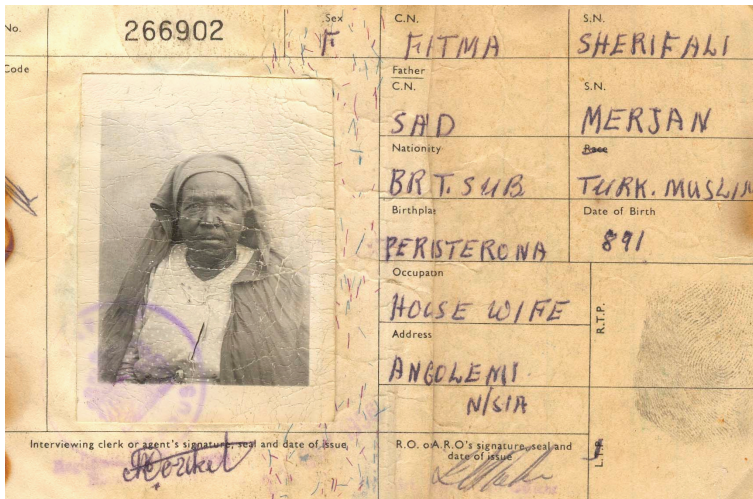 No. 266902 Sex F
Code
C.N. FITMA
S.N. SHERIFALI
Father
C.N. SAD
S.N. MERJAN
Nationity BRT. SUB
Race TURK. MUSLIM
Birthplac PERISTERONA
Date of Birth 891
Occupatin HOUSE WIFE
Address ANGOLEMI
N/SIA
R.T.P.
L.T.P.
Interviewing clerk or agent's signature, seal and date of issue,
R.O. or A.R.O's signature, seal and
date of issue